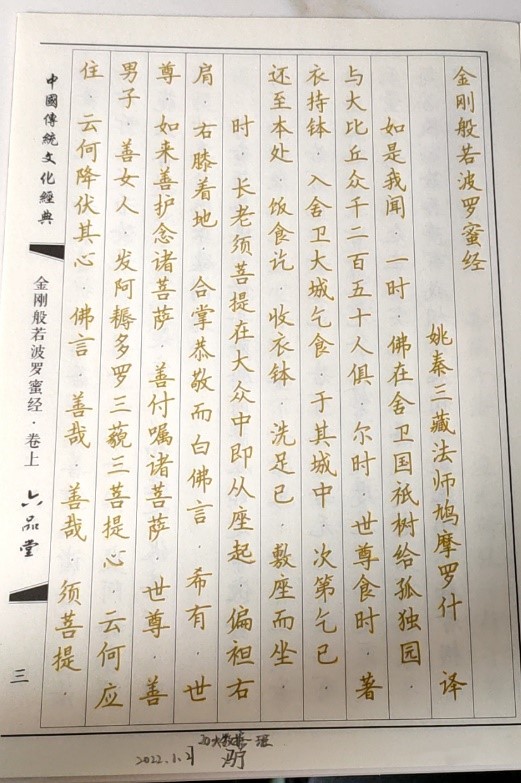 金刚般若波罗蜜经
姚秦三藏法师鸠摩罗什 译
如是我闻·一时·佛在舍卫国祇树给孤独园·
与大比丘众千二百五十人俱·尔时·世尊食时·著
衣持钵·入舍卫大城乞食·于其城中·次第乞已·
还至本处·饭食讫·收衣钵·洗足已·敷座而坐·
时·长老须菩提在大众中即从座起·偏袒右
肩·右膝着地·合掌恭敬而白佛言·希有·世
尊·如来善护念诸菩萨·善付嘱诸菩萨·世尊·善
男子·善女人·发阿耨多罗三藐三菩提心·云何应
住·云何降伏其心·佛言·善哉·善哉·须菩提·
中國傳統文化經典
金刚般若波罗蜜经·卷上
六品堂
三
20大数据一班